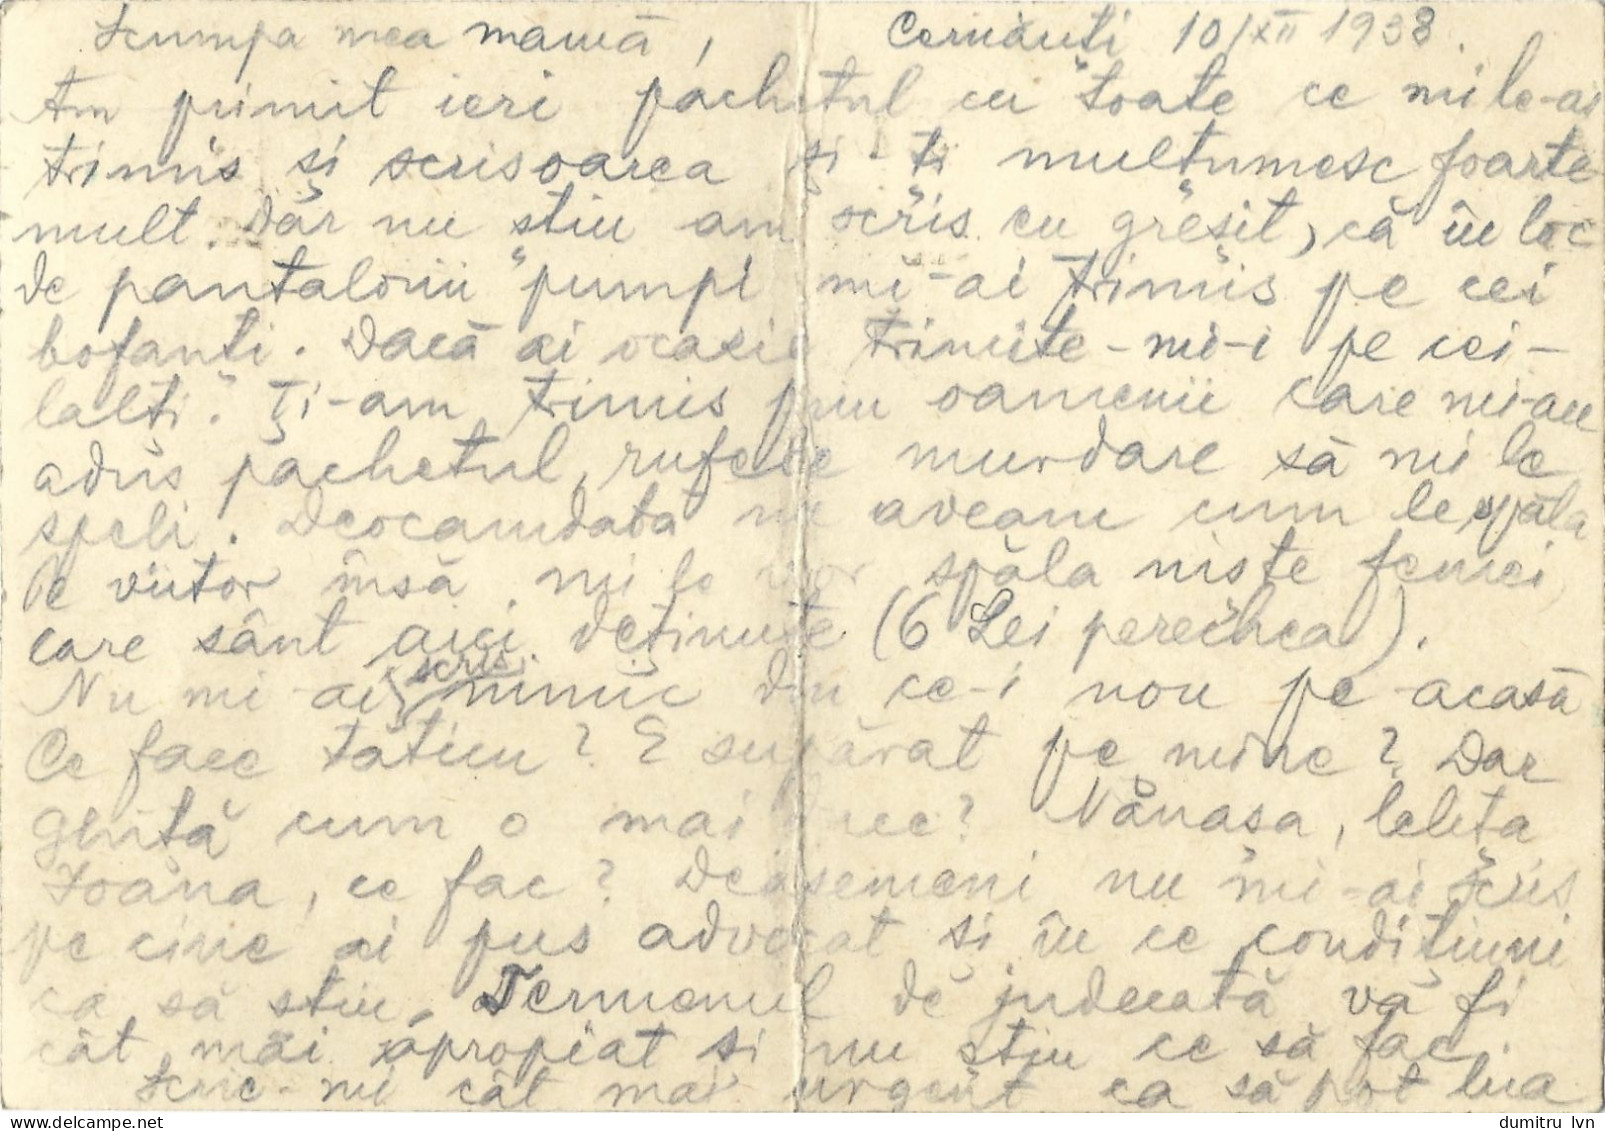 Scumpa mea mamă, Cernăuți 10/XII 1938.
Am primit ieri pachetul cu toate ce mi le-ai
trimis și scrisoarea și-ți mulțumesc foarte
mult. Dar nu știu am scris eu greșit, că în loc
de pantalonii "pumpi" mi-ai trimis pe cei
bofanți. Dacă ai ocazie trimite-mi-i pe cei-
lalți. Ți-am trimis prin oamenii care mi-au
adus pachetul, rufele murdare să mi le
speli. Deocamdată nu aveam cum le spăla
Pe viitor însă mi le vor spăla niște femei
care sânt aici deținute (6 Lei perechea).
Nu mi-ai scris nimic din ce-i nou pe-acasă
Ce face tăticu? E supărat pe mine? Dar
Ghiță cum o mai duce? Nănașa, lelița
Ioana, ce fac? Deasemeni nu mi-ai scris
pe cine ai pus advocat și în ce condițiuni
ca să știu. Termenul de judecată va fi
cât mai apropiat și nu știu ce să fac
Scrie-mi cât mai urgent ca să pot lua
dumitru lvn